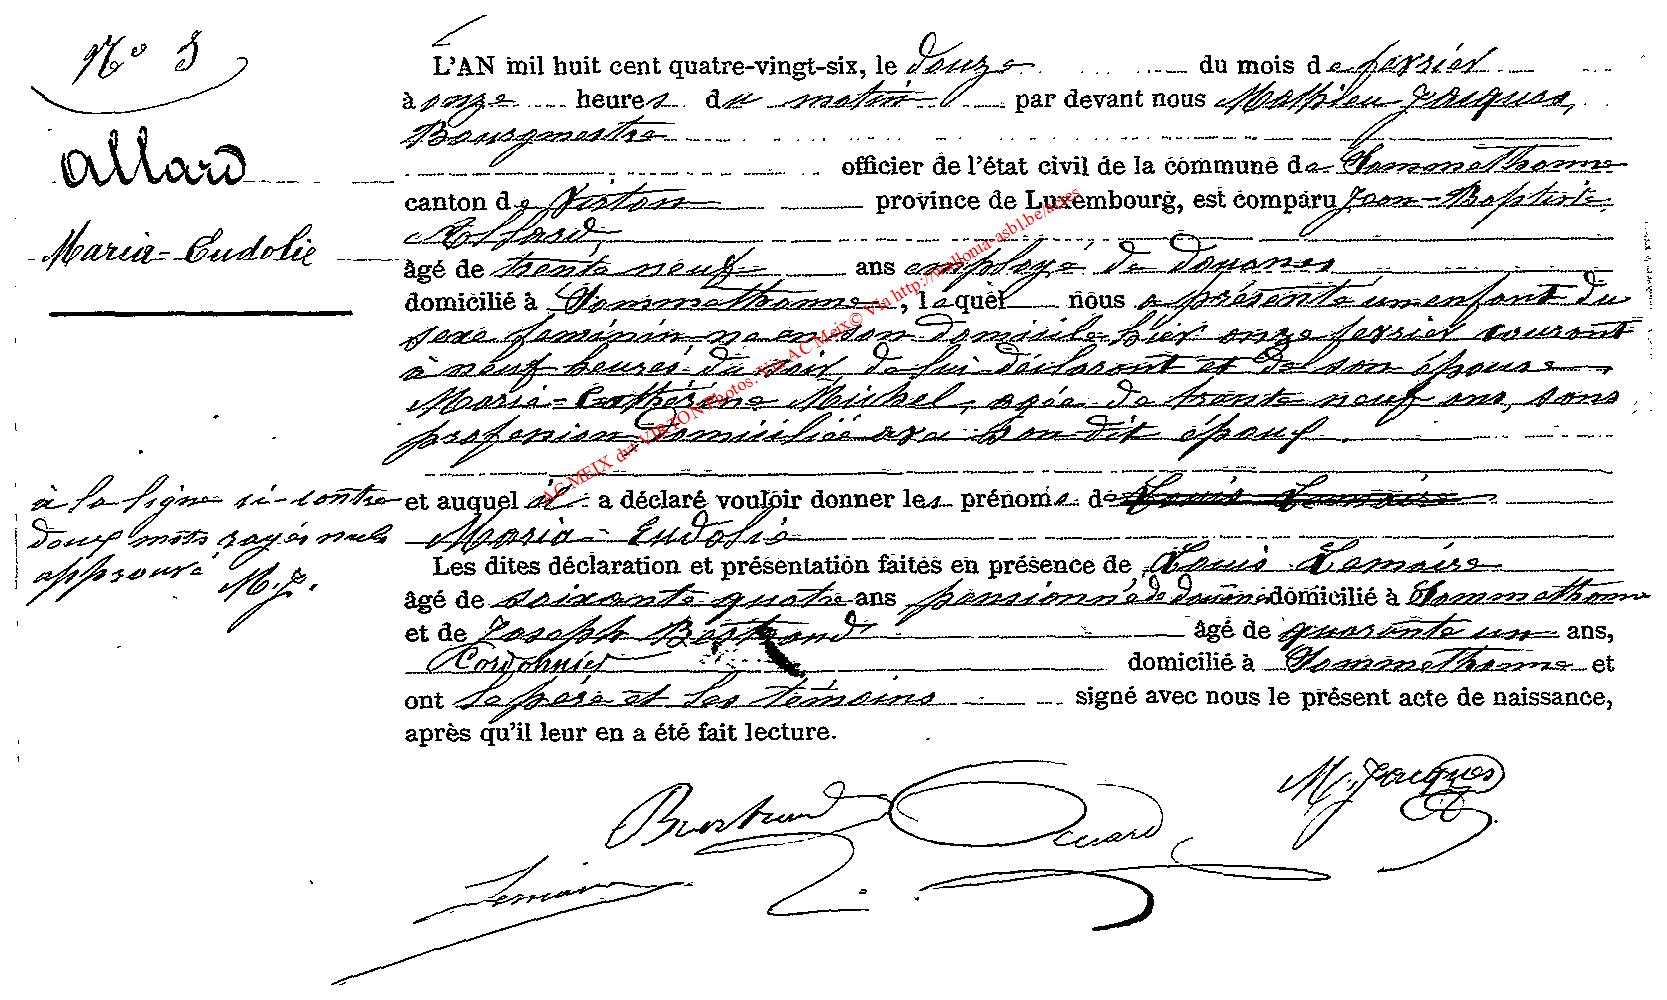 N° 3
Allard
Maria-Eudolie
L'AN mil huit cent quatre-vingt-six, le douze du mois de fevrier
à onze heures du matin par devant nous Mathieu Jacques,
Bourgmestre
officier de l'état civil de la commune de Sommethonne
canton de Virton province de Luxembourg, est comparu Jean-Baptiste
Allard,
âgé de trente neuf ans employé de douanes
domicilié à Sommethonne, lequel nous a présenté un enfant du
sexe féminin né en son domicile hier onze fevrier courant
à neuf heures du soir, de lui déclarant et de son épouse
Marie-Cathérine Michel, agée de trente neuf ans, sans
profession domiciliée avec son dit époux.
et auquel il a déclaré vouloir donner les prénoms de Louis Lemaire
Maria-Eudolie
à la ligne ci-contre
deux mots rayés nuls
approuvé M.J.
Les dites déclaration et présentation faites en présence de Louis Lemaire
âgé de soixante quatre ans pensionné de douane domicilié à Sommethonne
et de Joseph Bertrand âgé de quarante un ans,
Cordonnier domicilié à Sommethonne et
ont le père et les témoins signé avec nous le présent acte de naissance,
après qu'il leur en a été fait lecture.
M. Jacques
Bertrand
Lemaire
AC MEIX dvt VIRTON Photos. Via AC Meix© Via http://wallonia-asbl.be/actes